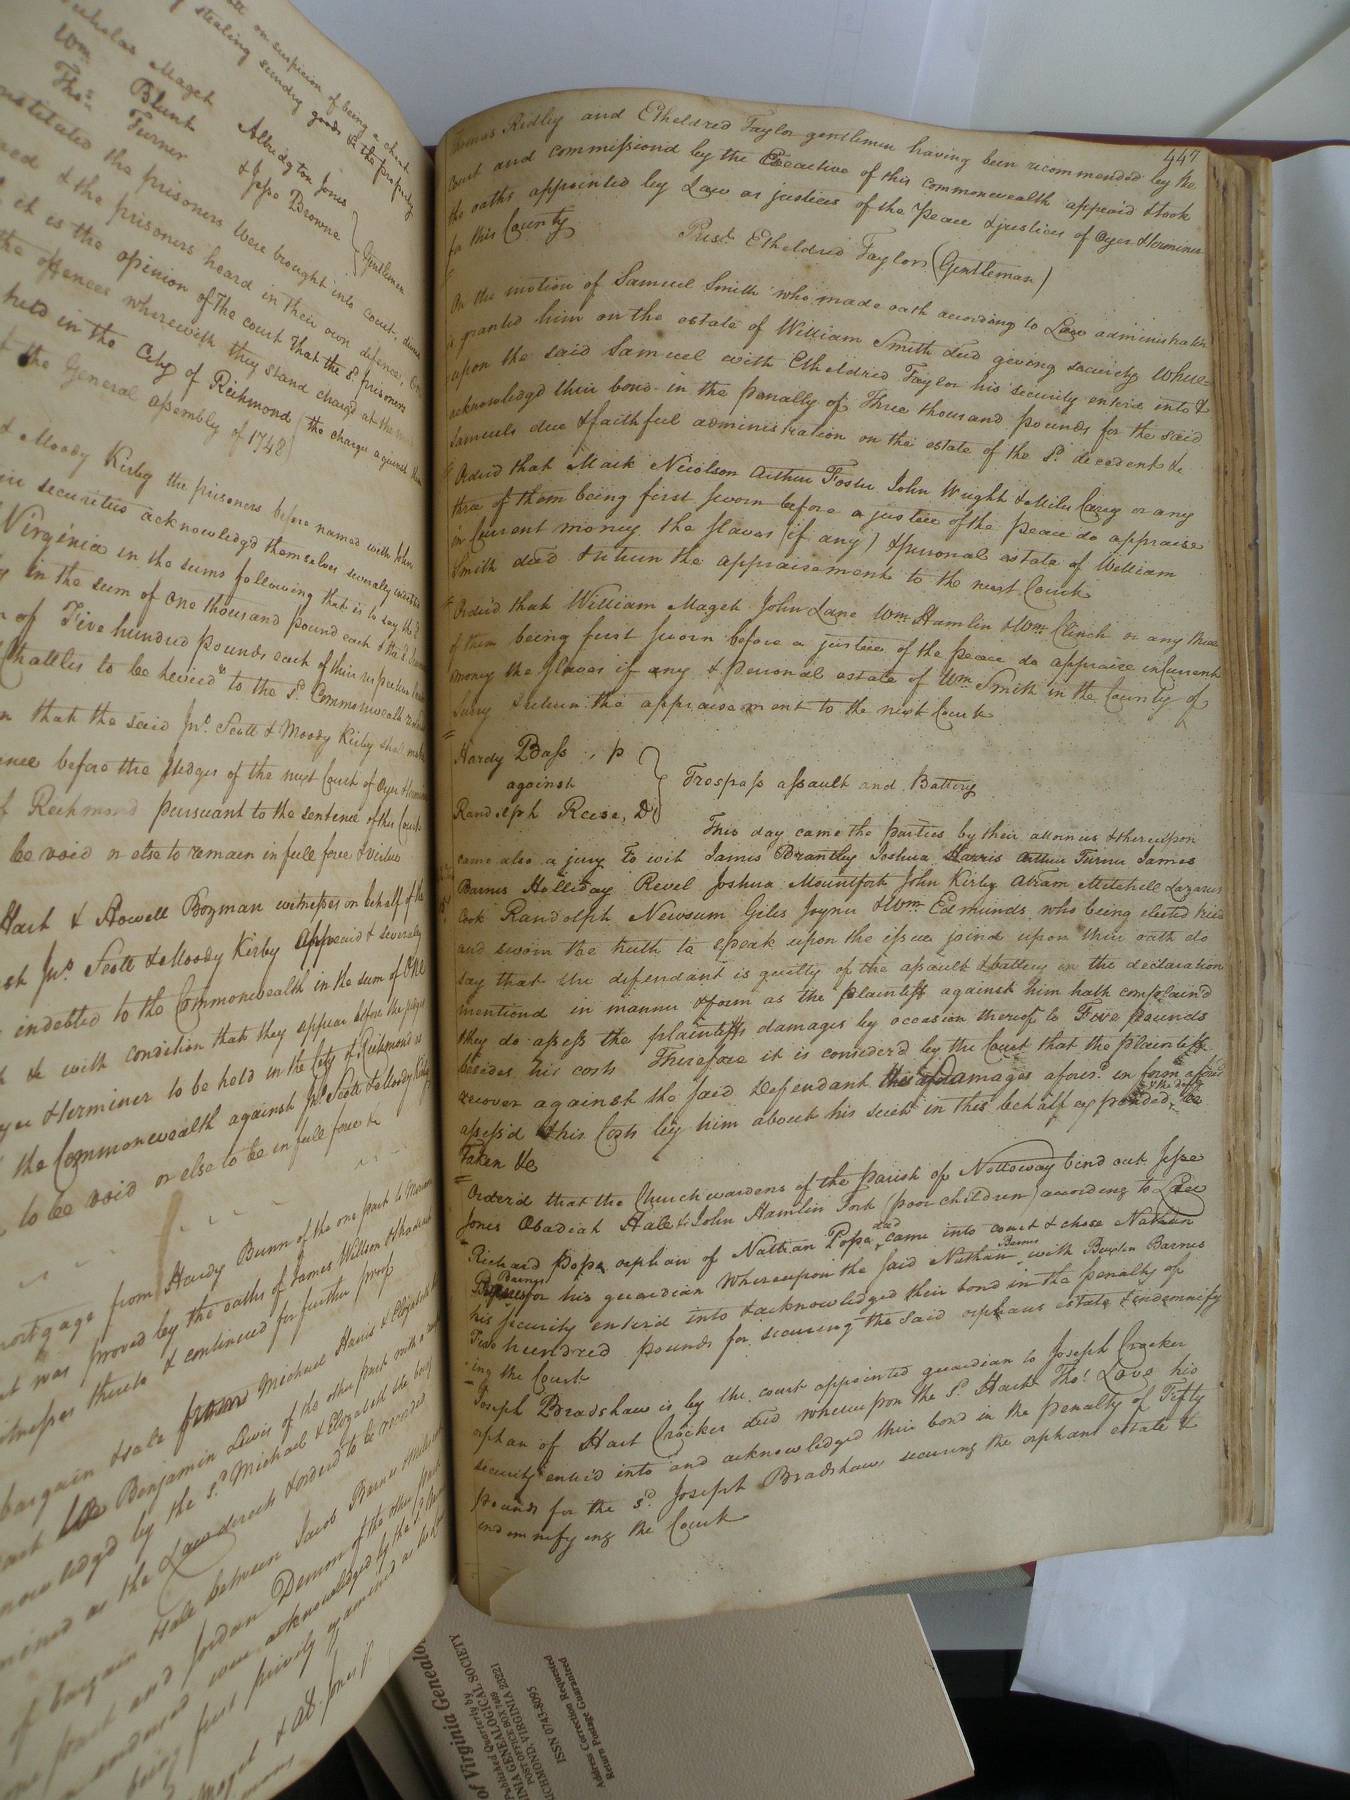 on suspicion of being a cheat
stealing sundry goods the property
Nicholas Maget Allridgton Jones
Wm. Blunt & Jesse Browne
Thos. Turner Gentlemen
the prisoners were brought into court
& the prisoners heard in their own defence,
it is the opinion of the court that the sd. prisoners
the offences wherewith they stand charg'd at the
held in the City of Richmond
the General assembly of 1748 the charge against
Moody Kirby the prisoners before named with John
securities acknowledgd themselves severally
Virginia in the sums following that is to say the
in the sum of One thousand pound each & the
of Five hundred pounds each of their respective
Chattles to be levied to the sd. Commonwealth
that the said Jno. Scott & Moody Kirby shall
before the Judges of the next Court of Oyer &
Richmond pursuant to the sentence of this Court
be void or else to remain in full force & virtue
Hart & Howell Bozman witnesses on behalf of the
Jno. Scott & Moody Kirby Appeard & severally
indebted to the Commonwealth in the sum of one
& with condition that they appear before the
& terminer to be held in the City of Richmond
the Commonwealth against Jno. Scott & Moody Kirby
to be void or else to be in full force &c
mortgage from Hardy Bunn of the one part to
was proved by the oaths of James Willson
thereto & continued for further proof
bargain & sale from Michael Harris & Elizabeth
Benjamin Lewis of the other part with
by the sd. Michael & Elizabeth the
as the Law directs & orderd to be recorded
of bargain & sale between Jacob Barnes
part and Jordan Denson of the other part
were acknowledged by the
being first privily examined as
447
Thomas Ridley and Etheldred Taylor gentlemen having been recommended by the
Court and commissiond by the Executive of this commonwealth appeard & took
the oaths appointed by Law as justices of the Peace & justices of Oyer & terminer
for this County
Prest. Etheldred Taylor (Gentleman)
On the motion of Samuel Smith who made oath according to Law administration
is granted him on the estate of William Smith decd giving security Where=
upon the said Samuel with Etheldred Taylor his security enterd into &
acknowledgd their bond in the penalty of Three thousand pounds for the said
Samuels due & faithful administration on the estate of the sd. decedent &c
Orderd that Mark Nicolson Arthur Foster John Wright & Miles Cary or any
three of them being first sworn before a justice of the peace do appraise
in Current money the slaves (if any) & personal estate of William
Smith decd & return the appraisement to the next Court
Orderd that William Maget John Lane Wm. Hamlin & Wm. Clinch or any three
of them being first sworn before a justice of the peace do appraise in current
money the slaves if any & personal estate of Wm. Smith in the County of
Surry & return the appraisement to the next Court
Hardy Bass, p
against
Trespass assault and Battery
Randolph Reese, D
This day came the parties by their attornies & thereupon
came also a jury to wit James Brantley Joshua Harris Arthur Turner James
Barnes Holliday Revel Joshua Mountfort John Kirby Abram Mitchell Lazarus
Cook Randolph Newsum Giles Joyner & Wm. Edmunds who being elected tried
and sworn the truth to speak upon the issue joind upon their oath do
say that the defendant is guilty of the assault & battery in the declaration
mentiond in manner & form as the plaintiff against him hath complain'd
they do assess the plaintiffs damages by occasion thereof to Five pounds
besides his costs Therefore it is considerd by the Court that the plaintiff
recover against the said Defendant his Damages aforesd. in form afores
assess'd & his Costs by him about his suit in this behalf expended, & the deft. be
Taken &c
Order'd that the Church wardens of the parish of Nottoway bind out Jesse
Jones Obadiah Hale & John Hamlin York (poor children) according to Law
Richard Pope orphan of Nathan Pope decd came into court & chose Nathan
Barnes for his guardian Whereupon the said Nathan Barnes with Burwell Barnes
his security enterd into & acknowledged their bond in the penalty of
Two hundred pounds for securing the said orphans estate & indemnify
ing the Court
Joseph Bradshaw is by the court appointed guardian to Joseph Crocker
orphan of Hart Crocker decd whereupon the sd. Hart Thos. Love his
security enterd into and acknowledged their bond in the penalty of Fifty
pounds for the sd. Joseph Bradshaws securing the orphans estate &
indemnifying the Court
of Virginia Genealo
Published Quarterly by
INIA GENEALOGICAL SOCIETY
POST OFFICE BOX
RICHMOND, VIRGINIA 23221
ISSN 0743-8095
Address Correction Requested
Return Postage Guaranteed